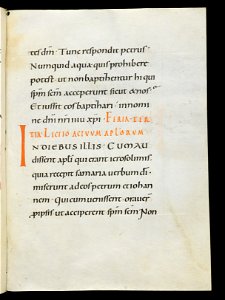 tes dm̄. Tunc respondit petrus.
Numquid aqua quis prohibere
potest. ut non baptizentur hi qui
spm̄ scm̄ acceperunt sicut &nos.
Et iussit eos baptizari. in nomi
ne dn̄i nr̄i ihu xp̄i. FERIA TER
TIA. LECTIO ACTUUM APLORUM
IN DIEBUS ILLIS. CUM AU
dissent apl̄i qui erant ierosolimis.
quia recepit samaria verbum dī.
miserunt ad eos petrum et iohan
nem. Qui cum venissent. oraver̄
pro ipsis ut acciperent spm̄ scm̄. Non